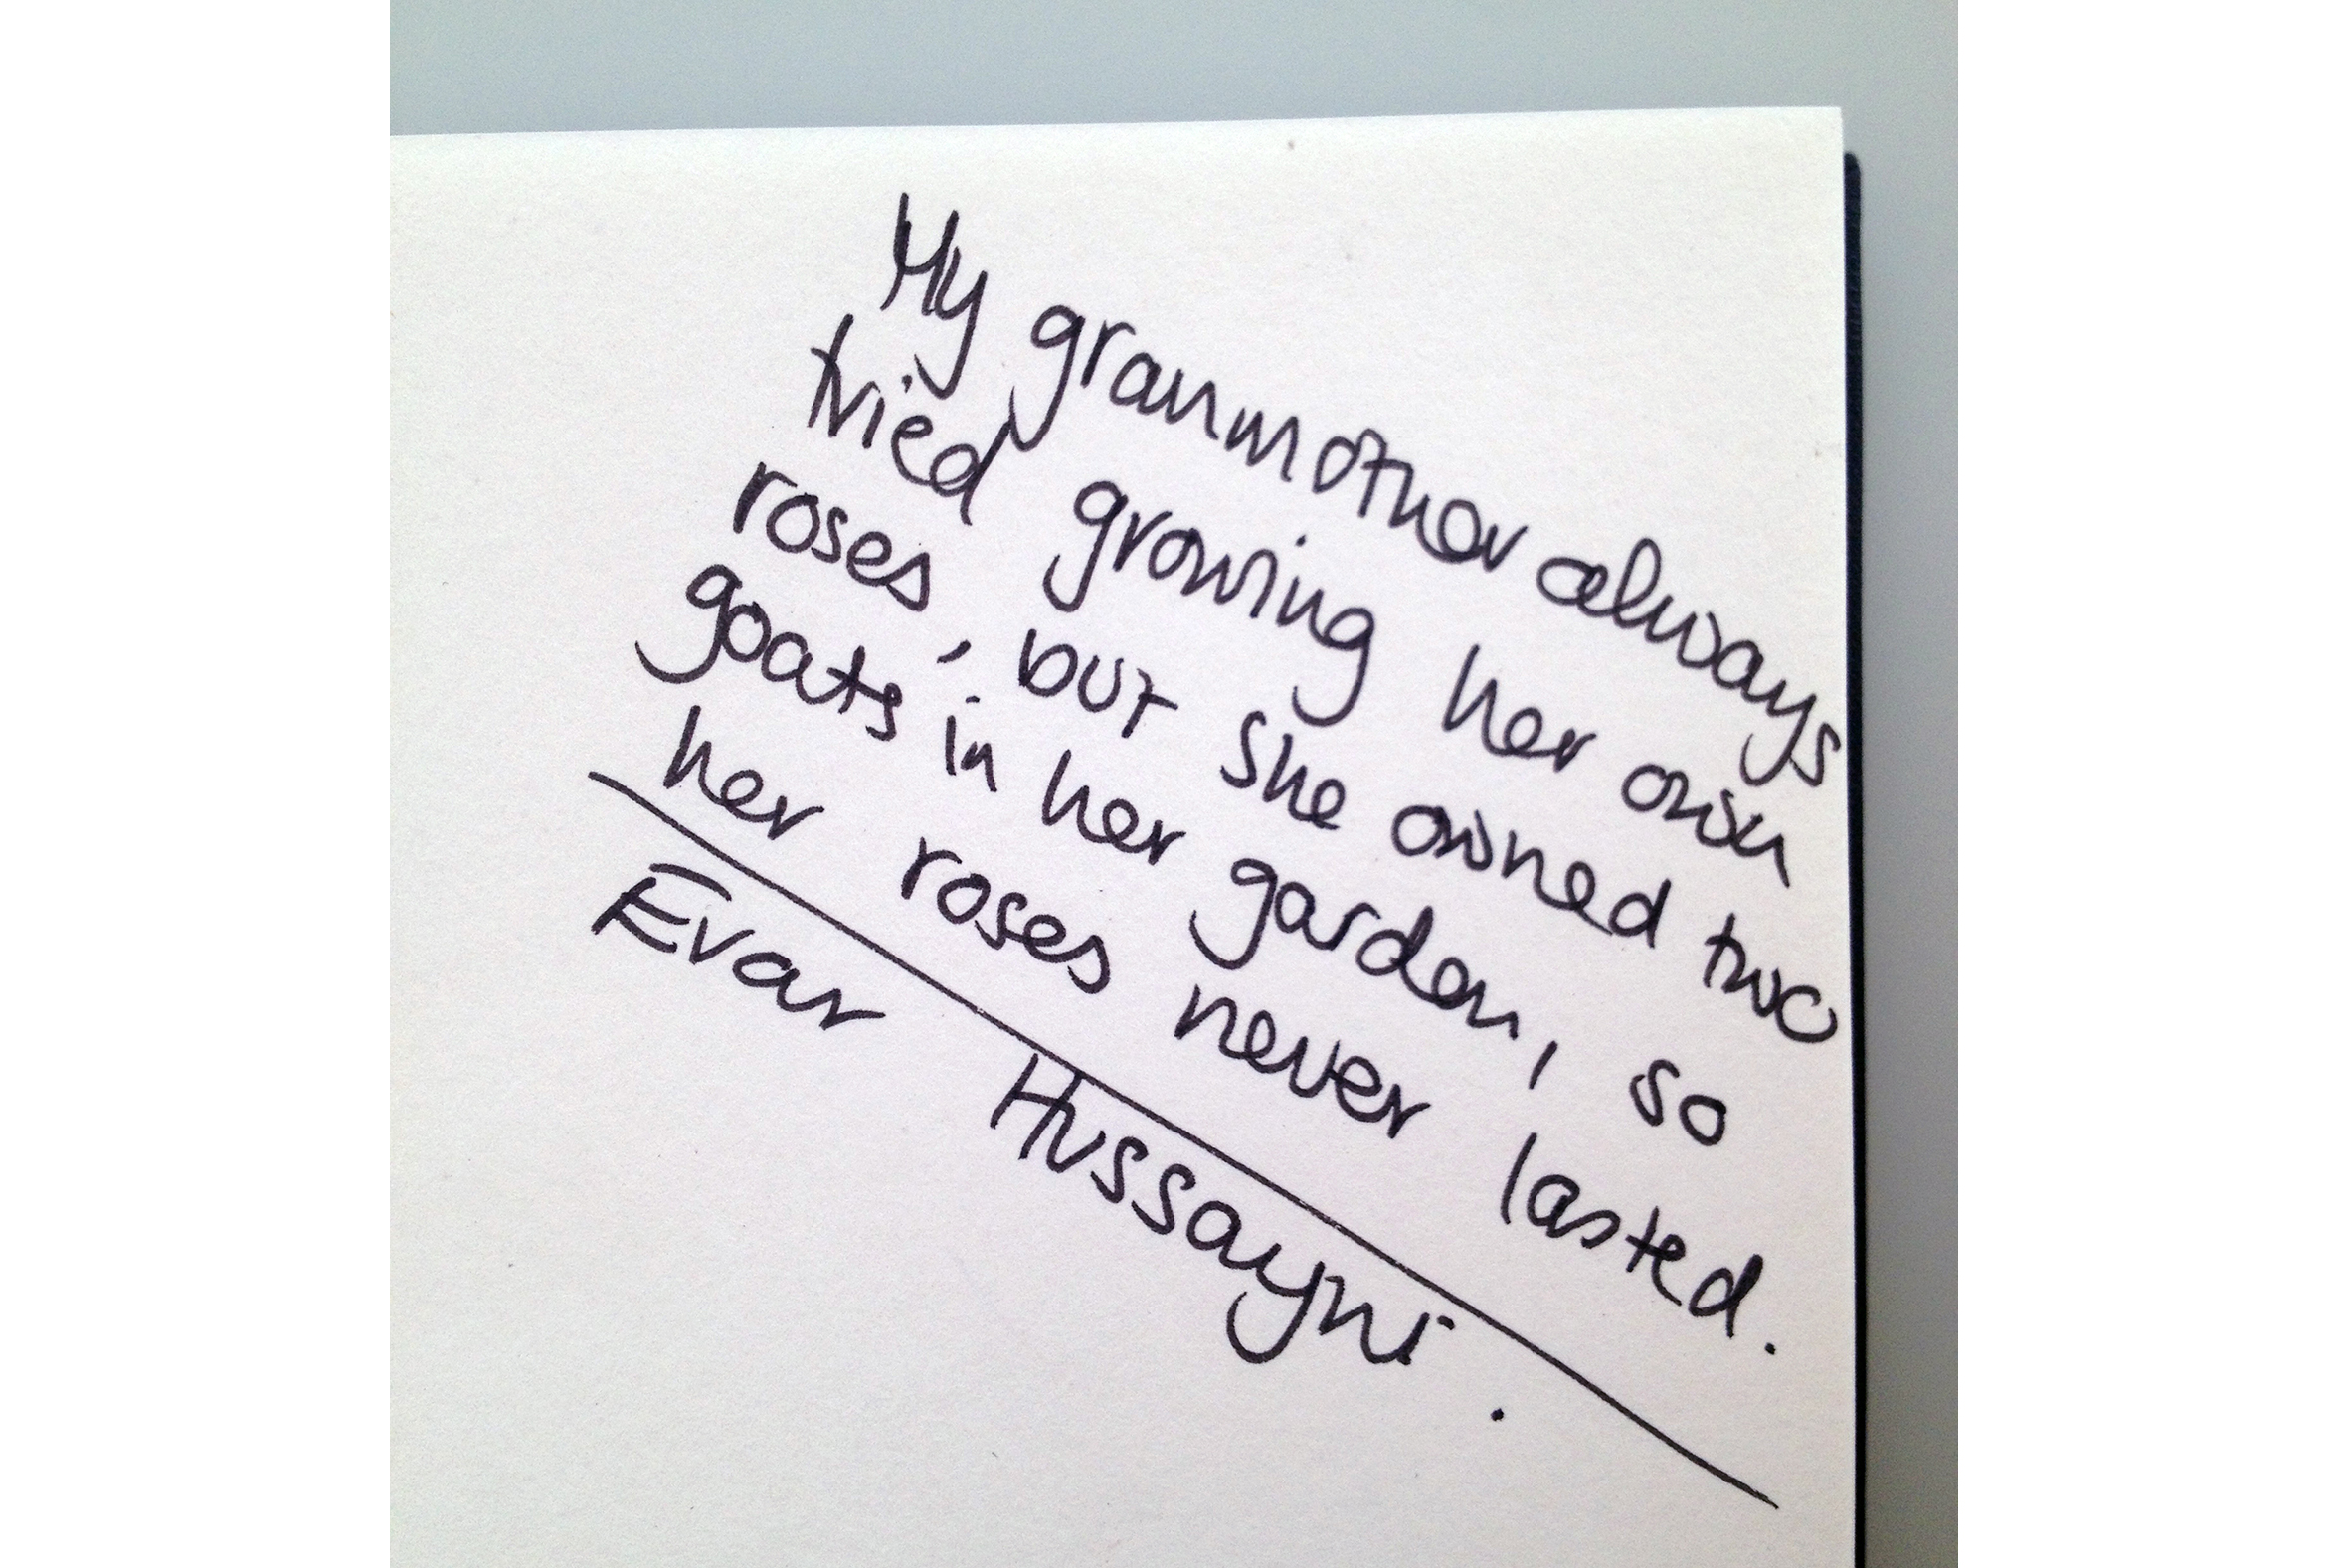 My granmother always
tried growing her own
roses, but she owned two
goats in her garden, so
her roses never lasted.
Evar Hussayni.